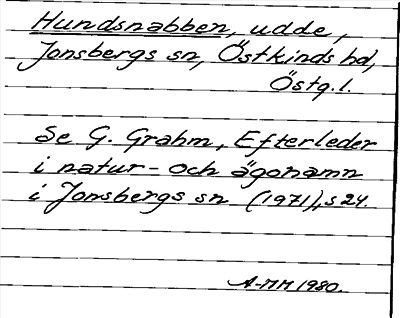 Hundsnabben, udde,
Jonsbergs sn, Östkinds hd,
Östg.l.
Se G. Grahm, Efterleder
i natur- och ägonamn
i Jonsbergs sn (1971), s 24.
A-MM 1980.